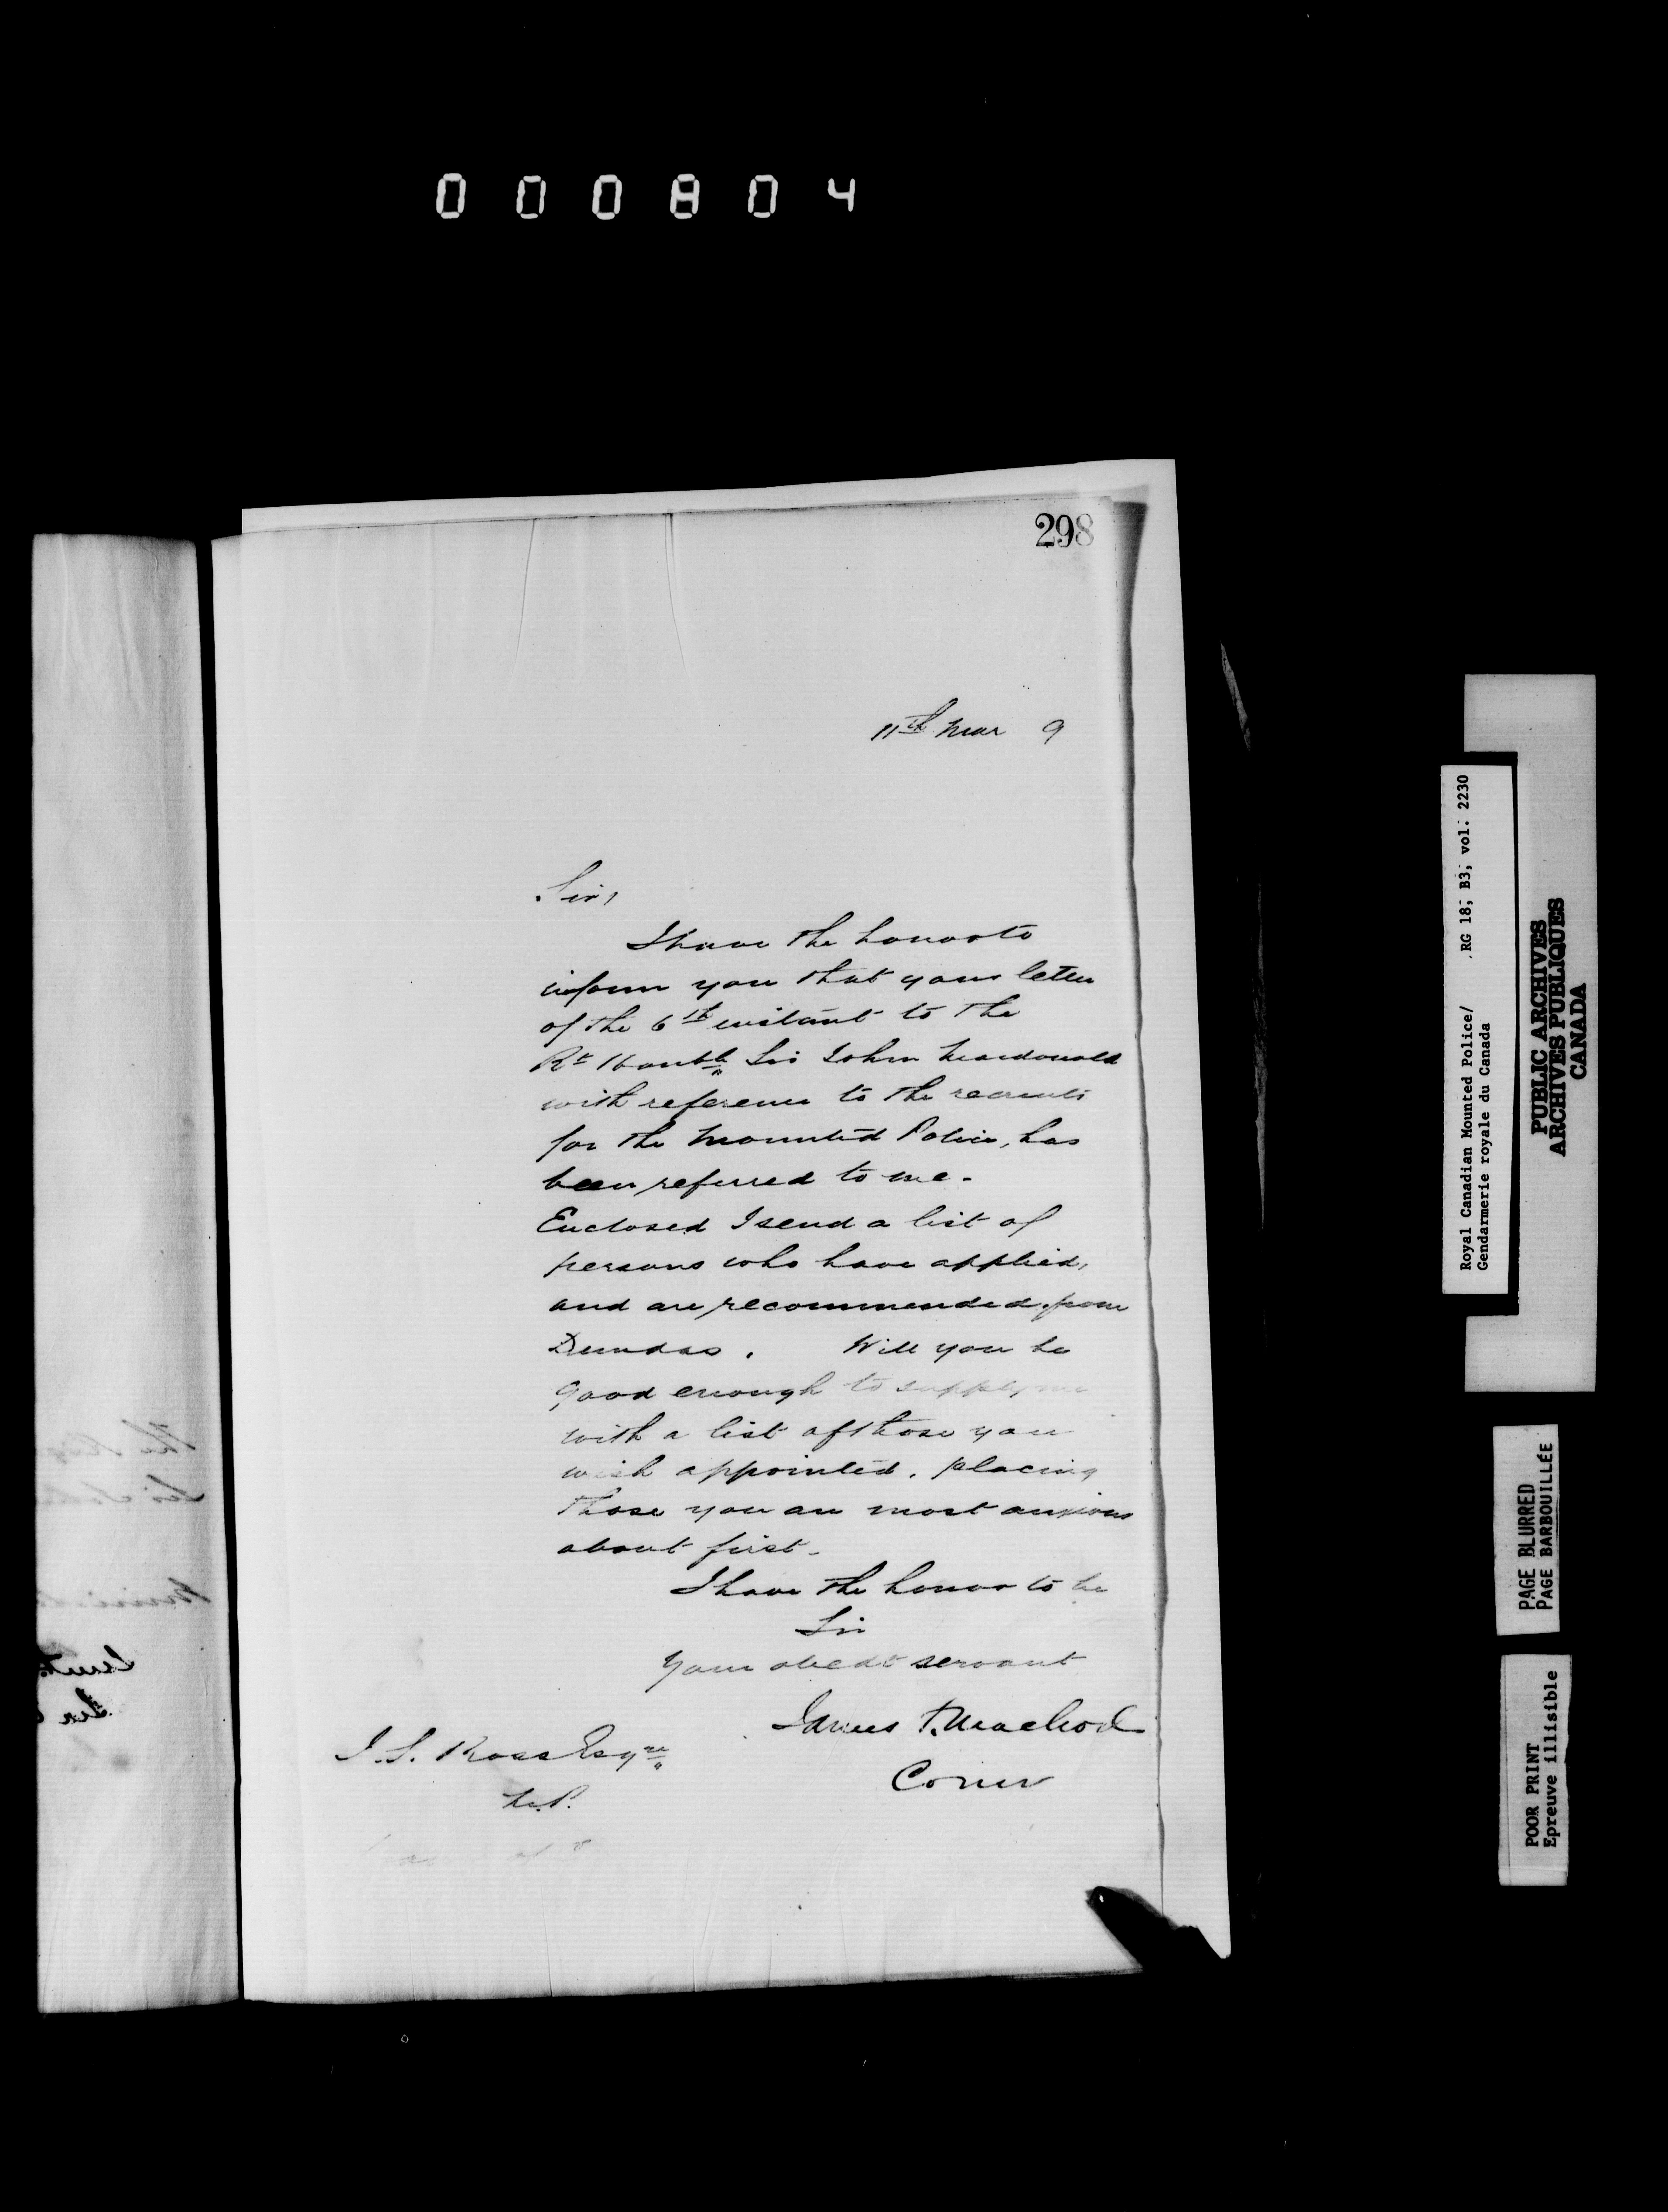 000804
298
11th Mar 9
Sir,
I have the honor to
inform you that your letter
of the 6th instant to the
Rt Honble Sir John Macdonald
with reference to the recruits
for the Mounted Police, has
been referred to me.
Enclosed I send a list of
persons who have applied,
and are recommended from
Dundas. Will you be
good enough to supply me
with a list of those you
wish appointed, placing
those you are most anxious
about first.
I have the honor to be
Sir
Your obedt servant
James F. Macleod
Comr
J. S. Ross Esqre
M.P.
Royal Canadian Mounted Police/ RG 18, B3, vol. 2230
Gendarmerie royale du Canada
PUBLIC ARCHIVES
ARCHIVES PUBLIQUES
CANADA
PAGE BLURRED
PAGE BARBOUILLÉE
POOR PRINT
Epreuve illisible